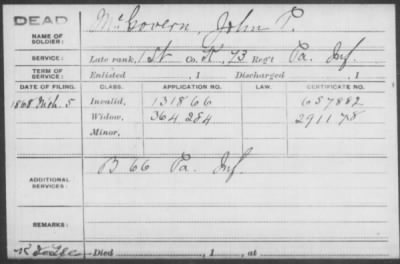 DEAD
NAME OF SOLDIER:
McGovern, John P.
SERVICE:
Late rank, 1 St Co. K, 73 Reg't Pa. Inf.
TERM OF SERVICE:
Enlisted , 1 Discharged , 1
DATE OF FILING. CLASS. APPLICATION NO. LAW. CERTIFICATE NO.
1868 Mch. 5 Invalid, 131866 657882
Widow, 364284 291178
Minor,
ADDITIONAL SERVICES:
B 66 Pa. Inf.
REMARKS:
Died , 1 , at